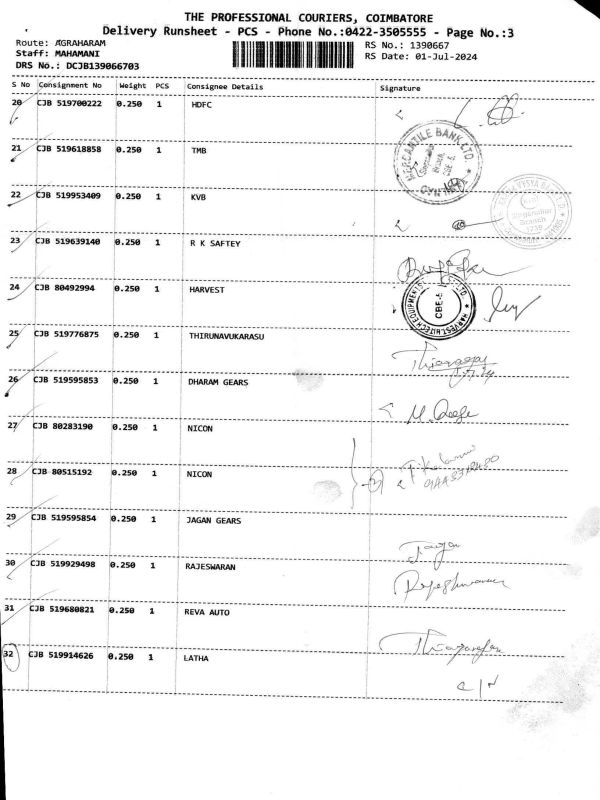 THE PROFESSIONAL COURIERS, COIMBATORE
Delivery Runsheet - PCS - Phone No.:0422-3505555 - Page No.:3
Route: AGRAHARAM
RS No.: 1390667
Staff: MAHAMANI
RS Date: 01-Jul-2024
DRS No.: DCJB139066703
S No Consignment No Weight PCS Consignee Details Signature
20 CJB 519700222 0.250 1 HDFC
21 CJB 519618858 0.250 1 TMB
MERCANTILE BANK LTD.
22 CJB 519953409 0.250 1 KVB
Branch
23 CJB 519639140 0.250 1 R K SAFTEY
24 CJB 80492994 0.250 1 HARVEST
HARVEST HITECH EQUIPMENTS LTD.
CBE-5
25 CJB 519776875 0.250 1 THIRUNAVUKARASU
26 CJB 519595853 0.250 1 DHARAM GEARS
27 CJB 80283190 0.250 1 NICON
28 CJB 80515192 0.250 1 NICON
29 CJB 519595854 0.250 1 JAGAN GEARS
Jagan
30 CJB 519929498 0.250 1 RAJESWARAN
Rajeshwaran
31 CJB 519680821 0.250 1 REVA AUTO
32 CJB 519914626 0.250 1 LATHA